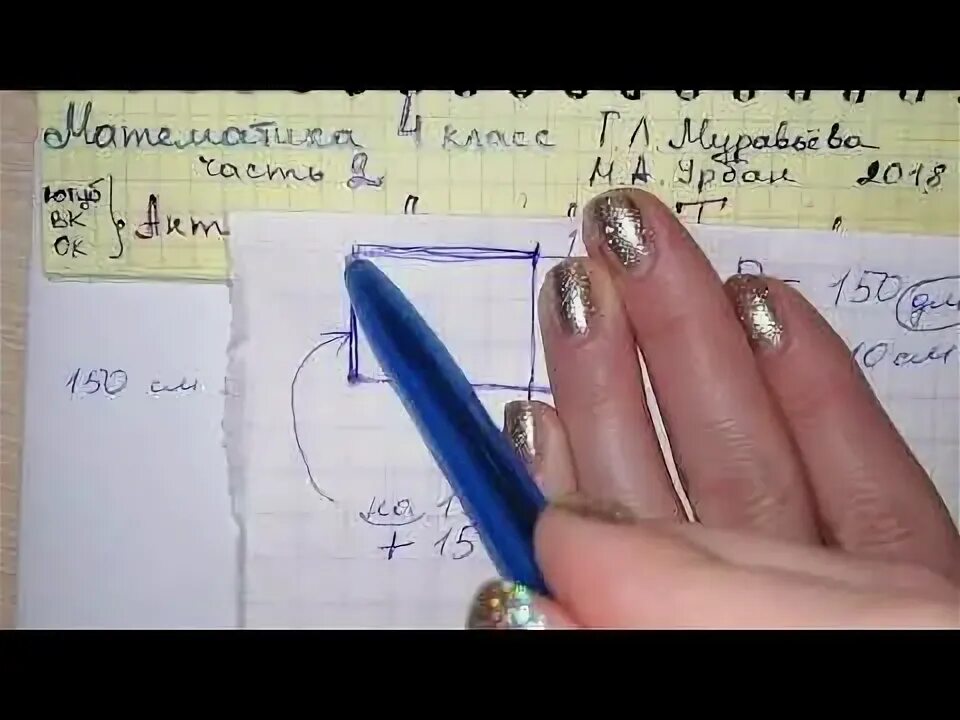 Математика 4 класс Г.Л. Муравьёва
часть 2 М.А. Урбан 2018
ютуб
ВК
ОК
Акт
150
150 см
10 см
на
+ 15